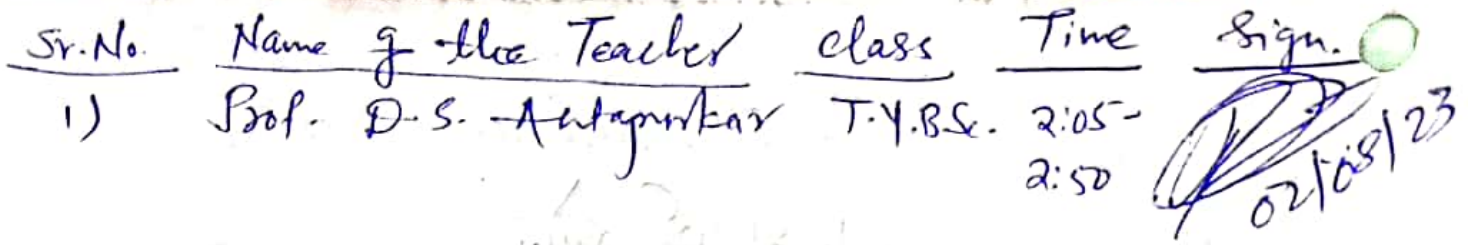 Sr.No. Name of the Teacher class Time Sign.
1) Prof. D.S. Antapurkar T.Y.B.Sc. 2:05-
2:50
02/08/23